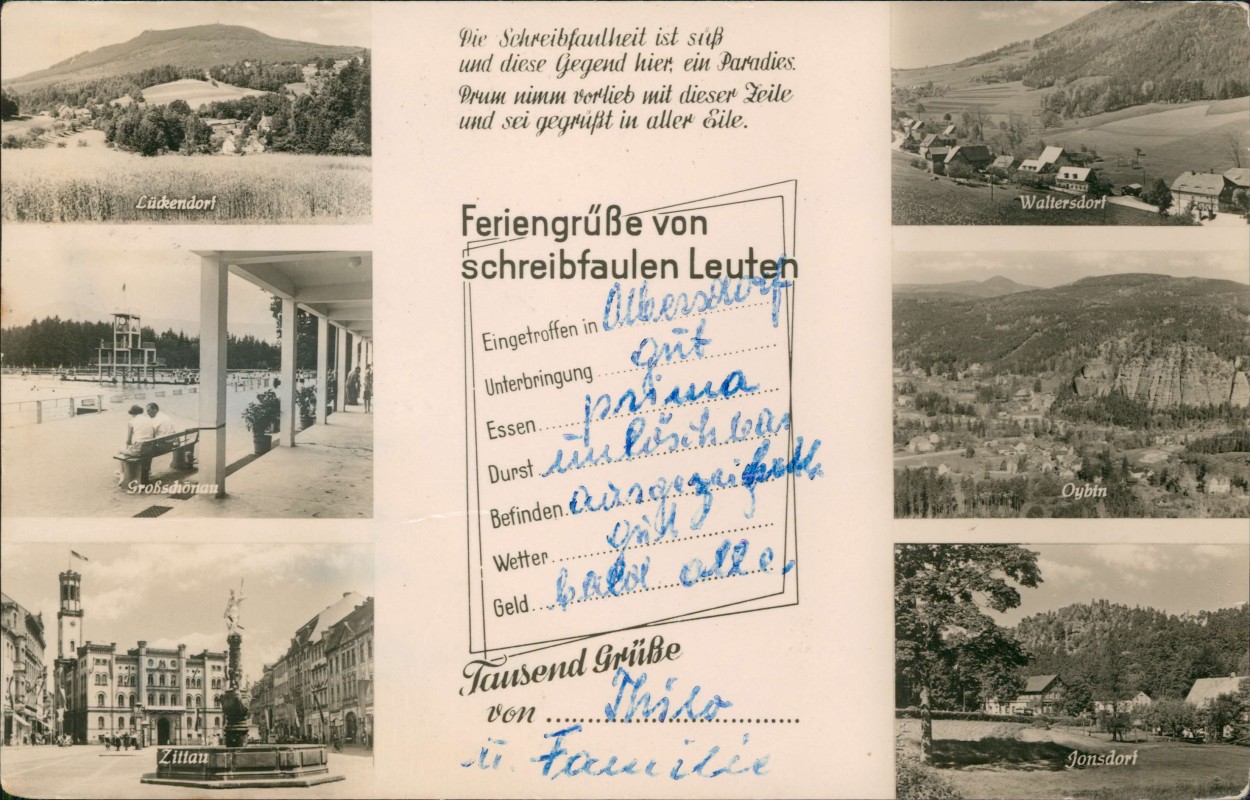 Die Schreibfaulheit ist süß
und diese Gegend hier, ein Paradies.
Drum nimm vorlieb mit dieser Zeile
und sei gegrüßt in aller Eile.
Feriengrüße von
schreibfaulen Leuten
Eingetroffen in Olbersdorf
Unterbringung gut
Essen prima
Durst unlöschbar
Befinden ausgezeichnet
Wetter gut
Geld bald alle.
Tausend Grüße
von Thilo
u. Familie
Lückendorf
Großschönau
Zittau
Waltersdorf
Oybin
Jonsdorf